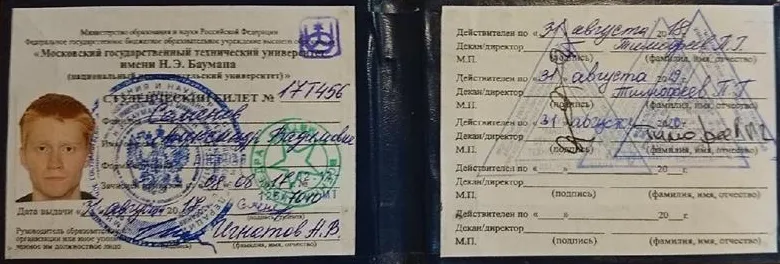 Министерство образования и науки Российской Федерации
Федеральное государственное бюджетное образовательное учреждение высшего
«Московский государственный технический университет
имени Н.Э. Баумана
(национальный исследовательский университет)»
СТУДЕНЧЕСКИЙ БИЛЕТ № 17Т456
Дата выдачи « 31 » августа 2017
Руководитель образовательной
организации или иное уполномоченное
им должностное лицо
Игнатов А.В.
(фамилия, имя, отчество)
Действителен по « 31 » августа 2018 г.
Декан/директор Тимофеев П.Г.
М.П. (подпись) (фамилия, имя, отчество)
Действителен по « 31 » августа 2019 г.
Декан/директор Тимофеев П.Г.
М.П. (подпись) (фамилия, имя, отчество)
Действителен по « 31 » августа 2020 г.
Декан/директор
М.П. (подпись) (фамилия, имя, отчество)
Действителен по « » 20 г.
Декан/директор
М.П. (подпись) (фамилия, имя, отчество)
Действителен по « » 20 г.
Декан/директор
М.П. (подпись) (фамилия, имя, отчество)